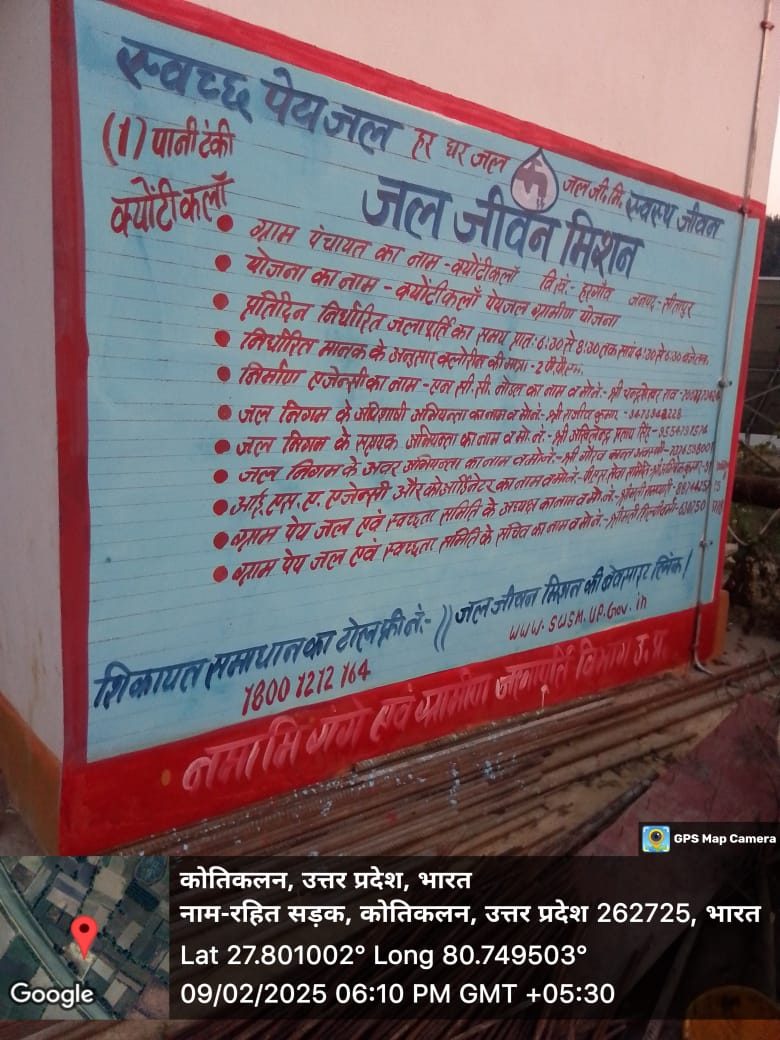 स्वच्छ पेयजल हर घर जल जल जी. मि. स्वस्थ जीवन
(1) पानी टंकी
क्योंटीकलाँ
जल जीवन मिशन
ग्राम पंचायत का नाम - क्योंटीकलाँ वि.खं.- हरगाँव जनपद - सीतापुर
योजना का नाम - क्योंटीकलाँ पेयजल ग्रामीण योजना
प्रतिदिन निर्धारित जलापूर्ति का समय प्रात: 6:30 से 8:30 तक सायं 4:30 से 6:30 बजे तक
निर्धारित मानक के अनुसार क्लोरीन की मात्रा - 2 पी.पी.एम.
निर्माण एजेन्सी का नाम - एन.सी.सी. नोडल का नाम व मो.नं.- श्री चन्द्रशेखर राव
जल निगम के अधिशाषी अभियन्ता का नाम व मो.नं.- श्री राजीव कुमार
जल निगम के सहायक अभियन्ता का नाम व मो. नं.- श्री अखिलेन्द्र प्रताप सिंह
जल निगम के अवर अभियन्ता का नाम व मो.नं.- श्री गौरव
आई.एस.ए. एजेन्सी और कोऑर्डिनेटर का नाम व मो.नं.-
ग्राम पेय जल एवं स्वच्छता समिति के अध्यक्ष का नाम व मो.नं.- श्रीमती
ग्राम पेय जल एवं स्वच्छता समिति के सचिव का नाम व मो.नं.- श्रीमती
शिकायत समाधान का टोल फ्री नं:- // जल जीवन मिशन की वेबसाइट लिंक !
1800 1212 164 www.swsm.up.Gov.in
नमामि गंगे एवं ग्रामीण जलापूर्ति विभाग उ.प्र.
GPS Map Camera
कोतिकलन, उत्तर प्रदेश, भारत
नाम-रहित सड़क, कोतिकलन, उत्तर प्रदेश 262725, भारत
Lat 27.801002° Long 80.749503°
09/02/2025 06:10 PM GMT +05:30
Google